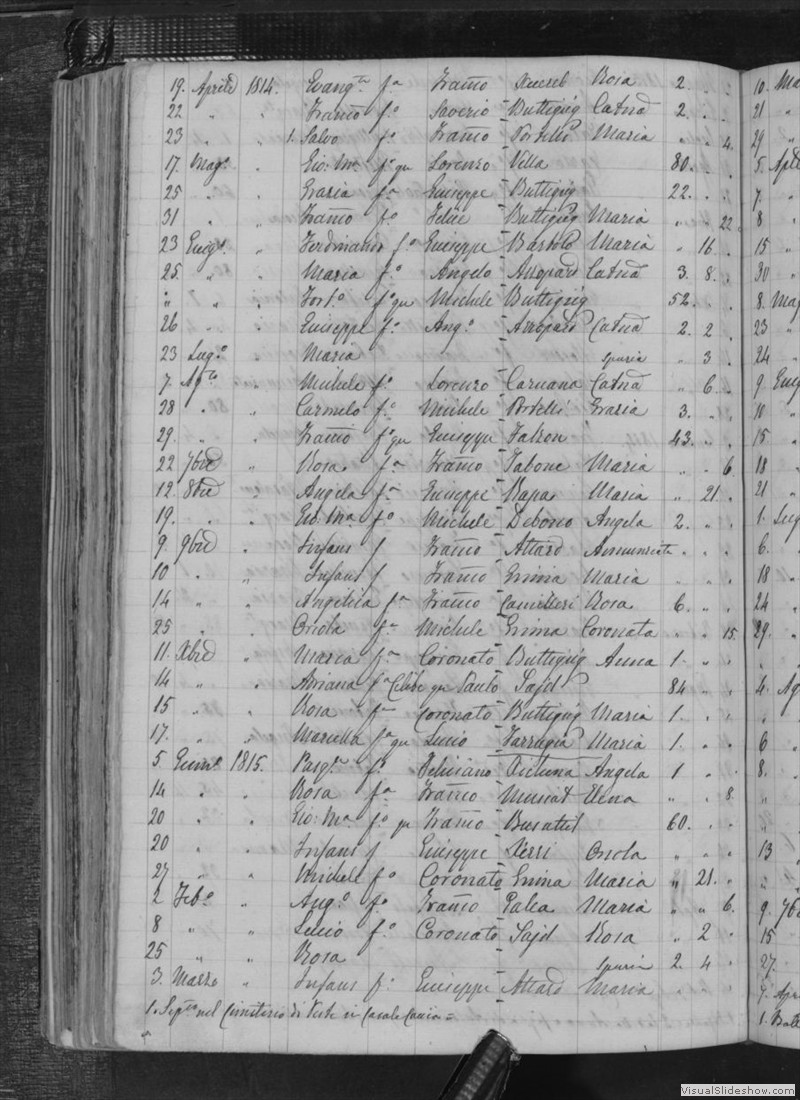 19. Aprile 1814. Evang.ta f.a Franco Xuereb Rosa 2 10. Ma
22 " " Franco f.o Saverio Buttigieg Catna 2. 21 "
23 " 1. Salvo f.o Franco Portelli Maria " " 4. 29 "
17. Mag.o Gio: M.a f.o qu Lorenzo Villa 80. 5. Aple
25 " Grazia f.a Giuseppe Buttigieg 22. 7. "
31 " Franco f.o Felice Buttigieg Maria " " 22 8 "
23 Giug.o " Ferdinando f.o Giuseppe Bartolo Maria " 16. 15 "
25. " " Maria f.a Angelo Catna 3. 8. 30 "
" " " Fort.o f.o qu Michele Buttigieg 52. 8. Mag
26 " " Giuseppe f.o Ang.o Catna 2. 2. 23 "
23 Lug.o " Maria spuria " 3 24 "
7. Ag.to " Michele f.o Lorenzo Caruana Catna " 6. 9 Giug
28 " " Carmelo f.o Michele Portelli Grazia 3. 10 "
29. " " Franco f.o qu Giuseppe Falzon 43. 15 "
22 7bre " Rosa f.a Franco Tabone Maria " " 6. 18 "
12. 8bre " Angela f.a Giuseppe Rapa Maria " 21. 21 "
19. " " Gio: M.a f.o Michele Debono Angela 2. " 1. Lug
9 9bre " Infans f Franco Attard Annunciata 6. "
10 " " Infans f Franco Grima Maria 18 "
14 " " Angelica f.a Franco Camilleri Rosa 6. " 24 "
25 " " Orsola f.a Michele Grima Coronata " " 15. 29. "
11. Xbre " Maria f.a Coronato Buttigieg Anna 1. "
14 " Adriana f.a Celibe qu Paulo Sajd 84 " 4. Ag
15 " " Rosa f.a Coronato Buttigieg Maria 1. "
17. " " Mariella f.a qu Lucio Farrugia Maria 1. " 6 "
5 Genn.o 1815. Pasq.e f.o Feliciano Vicluna Angela 1 " 8. "
14 " " Rosa f.a Franco Muscat Elena " " 8.
20 " " Gio: M.a f.o qu Franco Busuttil 60.
20 " Infans f Giuseppe Xerri Orsola " " 13 "
27 " " Michele f.o Coronato Grima Maria " 21. "
2 Feb.o " Ang.o f.o Franco Galea Maria " " 6. 9. 7b
8 " " Lucio f.o Coronato Sajd Rosa " 2 15 "
25 " " Rosa spuria 2. 4 27. "
3. Marzo " Infans f. Giuseppe Attard Maria 7. Apr
1. Sep.to nel Cimiterio di in Casale Caccia = 1. Ball
VisualSlideshow.com